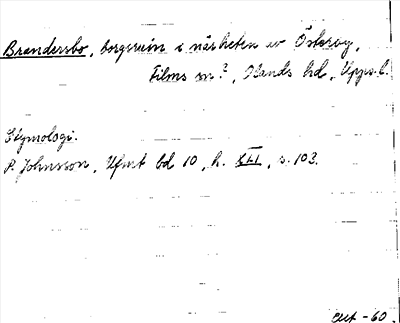 Brandersbo, borgruin i närheten av Österby,
Films sn?, Olands hd, Upps. l.
Etymologi.
P. Johnsson, Ufmt bd 10, h. XLI, s. 103.
-60.